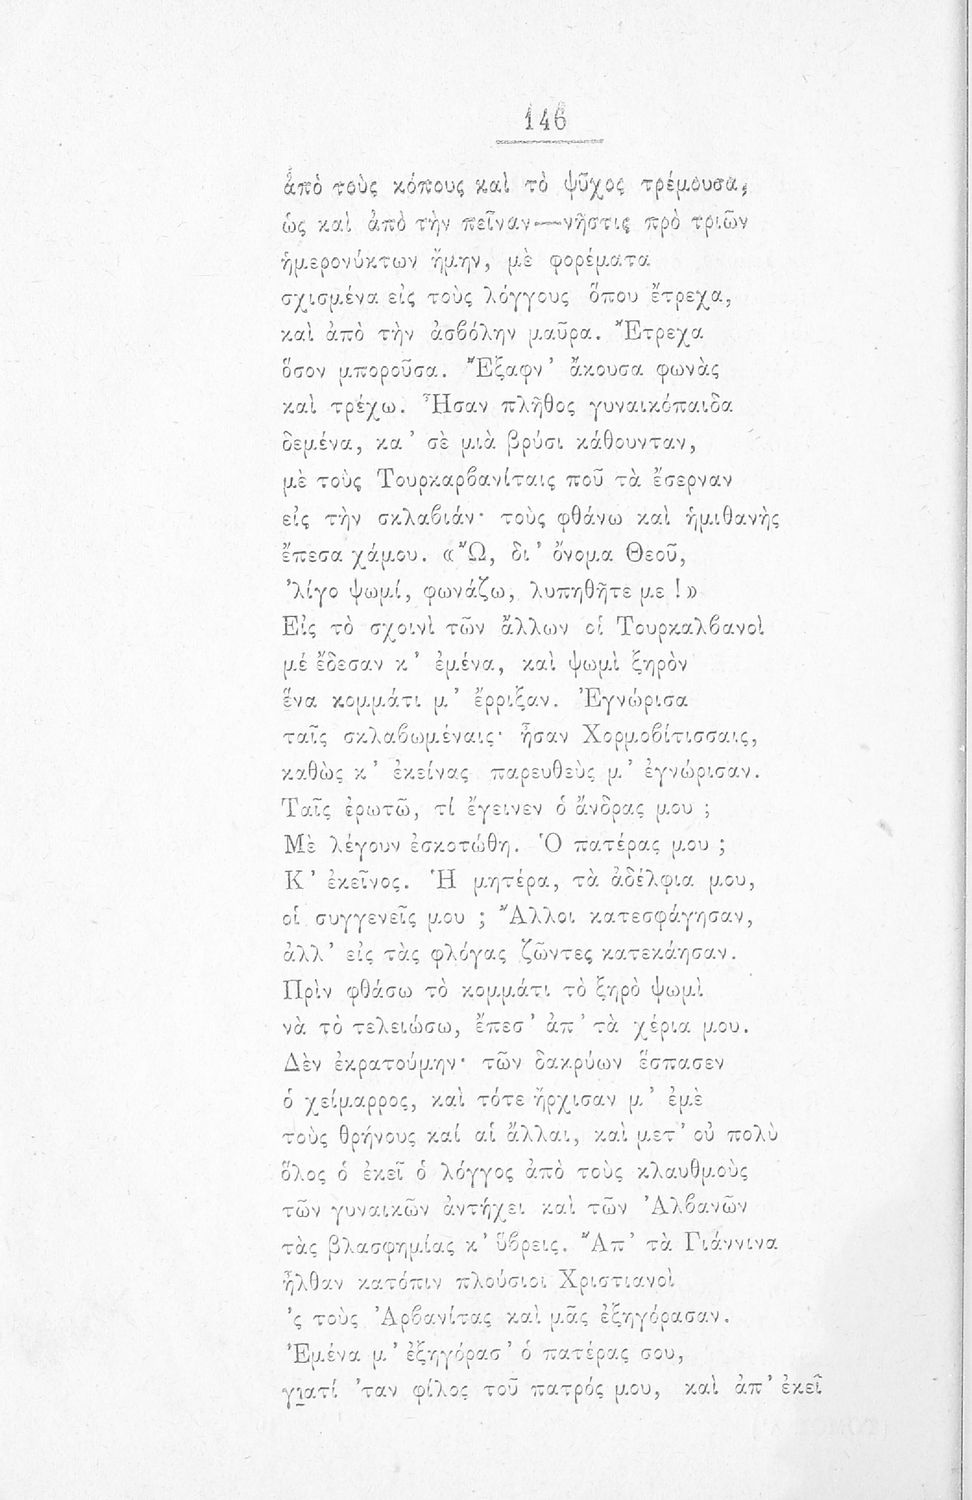 146
ἀπὸ τοὺς κόπους καὶ τὸ ψῦχος τρέμουσα,
ὡς καὶ ἀπὸ τὴν πεῖναν—νῆστις πρὸ τριῶν
ἡμερονύκτων ἤμην, μὲ φορέματα
σχισμένα εἰς τοὺς λόγγους ὅπου ἔτρεχα,
καὶ ἀπὸ τὴν ἀσβόλην μαῦρα. Ἔτρεχα
ὅσον μποροῦσα. Ἔξαφν' ἄκουσα φωνὰς
καὶ τρέχω. Ἦσαν πλῆθος γυναικόπαιδα
δεμένα, κα' σὲ μιὰ βρύσι κάθουνταν,
μὲ τοὺς Τουρκαρβανίταις ποῦ τὰ ἔσερναν
εἰς τὴν σκλαβιάν· τοὺς φθάνω καὶ ἡμιθανὴς
ἔπεσα χάμου. «Ὦ, δι' ὄνομα Θεοῦ,
'λίγο ψωμί, φωνάζω, λυπηθῆτε με !»
Εἰς τὸ σχοινὶ τῶν ἄλλων οἱ Τουρκαλβανοὶ
μὲ ἔδεσαν κ' ἐμένα, καὶ ψωμὶ ξηρὸν
ἕνα κομμάτι μ' ἔρριξαν. Ἐγνώρισα
ταῖς σκλαβωμέναις· ἦσαν Χορμοβίτισσαις,
καθὼς κ' ἐκείνας παρευθεὺς μ' ἐγνώρισαν.
Ταῖς ἐρωτῶ, τί ἔγεινεν ὁ ἄνδρας μου ;
Μὲ λέγουν ἐσκοτώθη. Ὁ πατέρας μου ;
Κ' ἐκεῖνος. Ἡ μητέρα, τὰ ἀδέλφια μου,
οἱ συγγενεῖς μου ; Ἄλλοι κατεσφάγησαν,
ἀλλ' εἰς τὰς φλόγας ζῶντες κατεκάησαν.
Πρὶν φθάσω τὸ κομμάτι τὸ ξηρὸ ψωμὶ
νὰ τὸ τελειώσω, ἔπεσ' ἀπ' τὰ χέρια μου.
Δὲν ἐκρατούμην· τῶν δακρύων ἔσπασεν
ὁ χείμαρρος, καὶ τότε ἤρχισαν μ' ἐμὲ
τοὺς θρήνους καί αἱ ἄλλαι, καὶ μετ' οὐ πολὺ
ὅλος ὁ ἐκεῖ ὁ λόγγος ἀπὸ τοὺς κλαυθμοὺς
τῶν γυναικῶν ἀντήχει καὶ τῶν Ἀλβανῶν
τὰς βλασφημίας κ' ὕβρεις. Ἀπ' τὰ Γιάννινα
ἦλθαν κατόπιν πλούσιοι Χριστιανοὶ
'ς τοὺς Ἀρβανίτας καὶ μᾶς ἐξηγόρασαν.
Ἐμένα μ' ἐξηγόρασ' ὁ πατέρας σου,
γιατί 'ταν φίλος τοῦ πατρός μου, καὶ ἀπ' ἐκεῖ